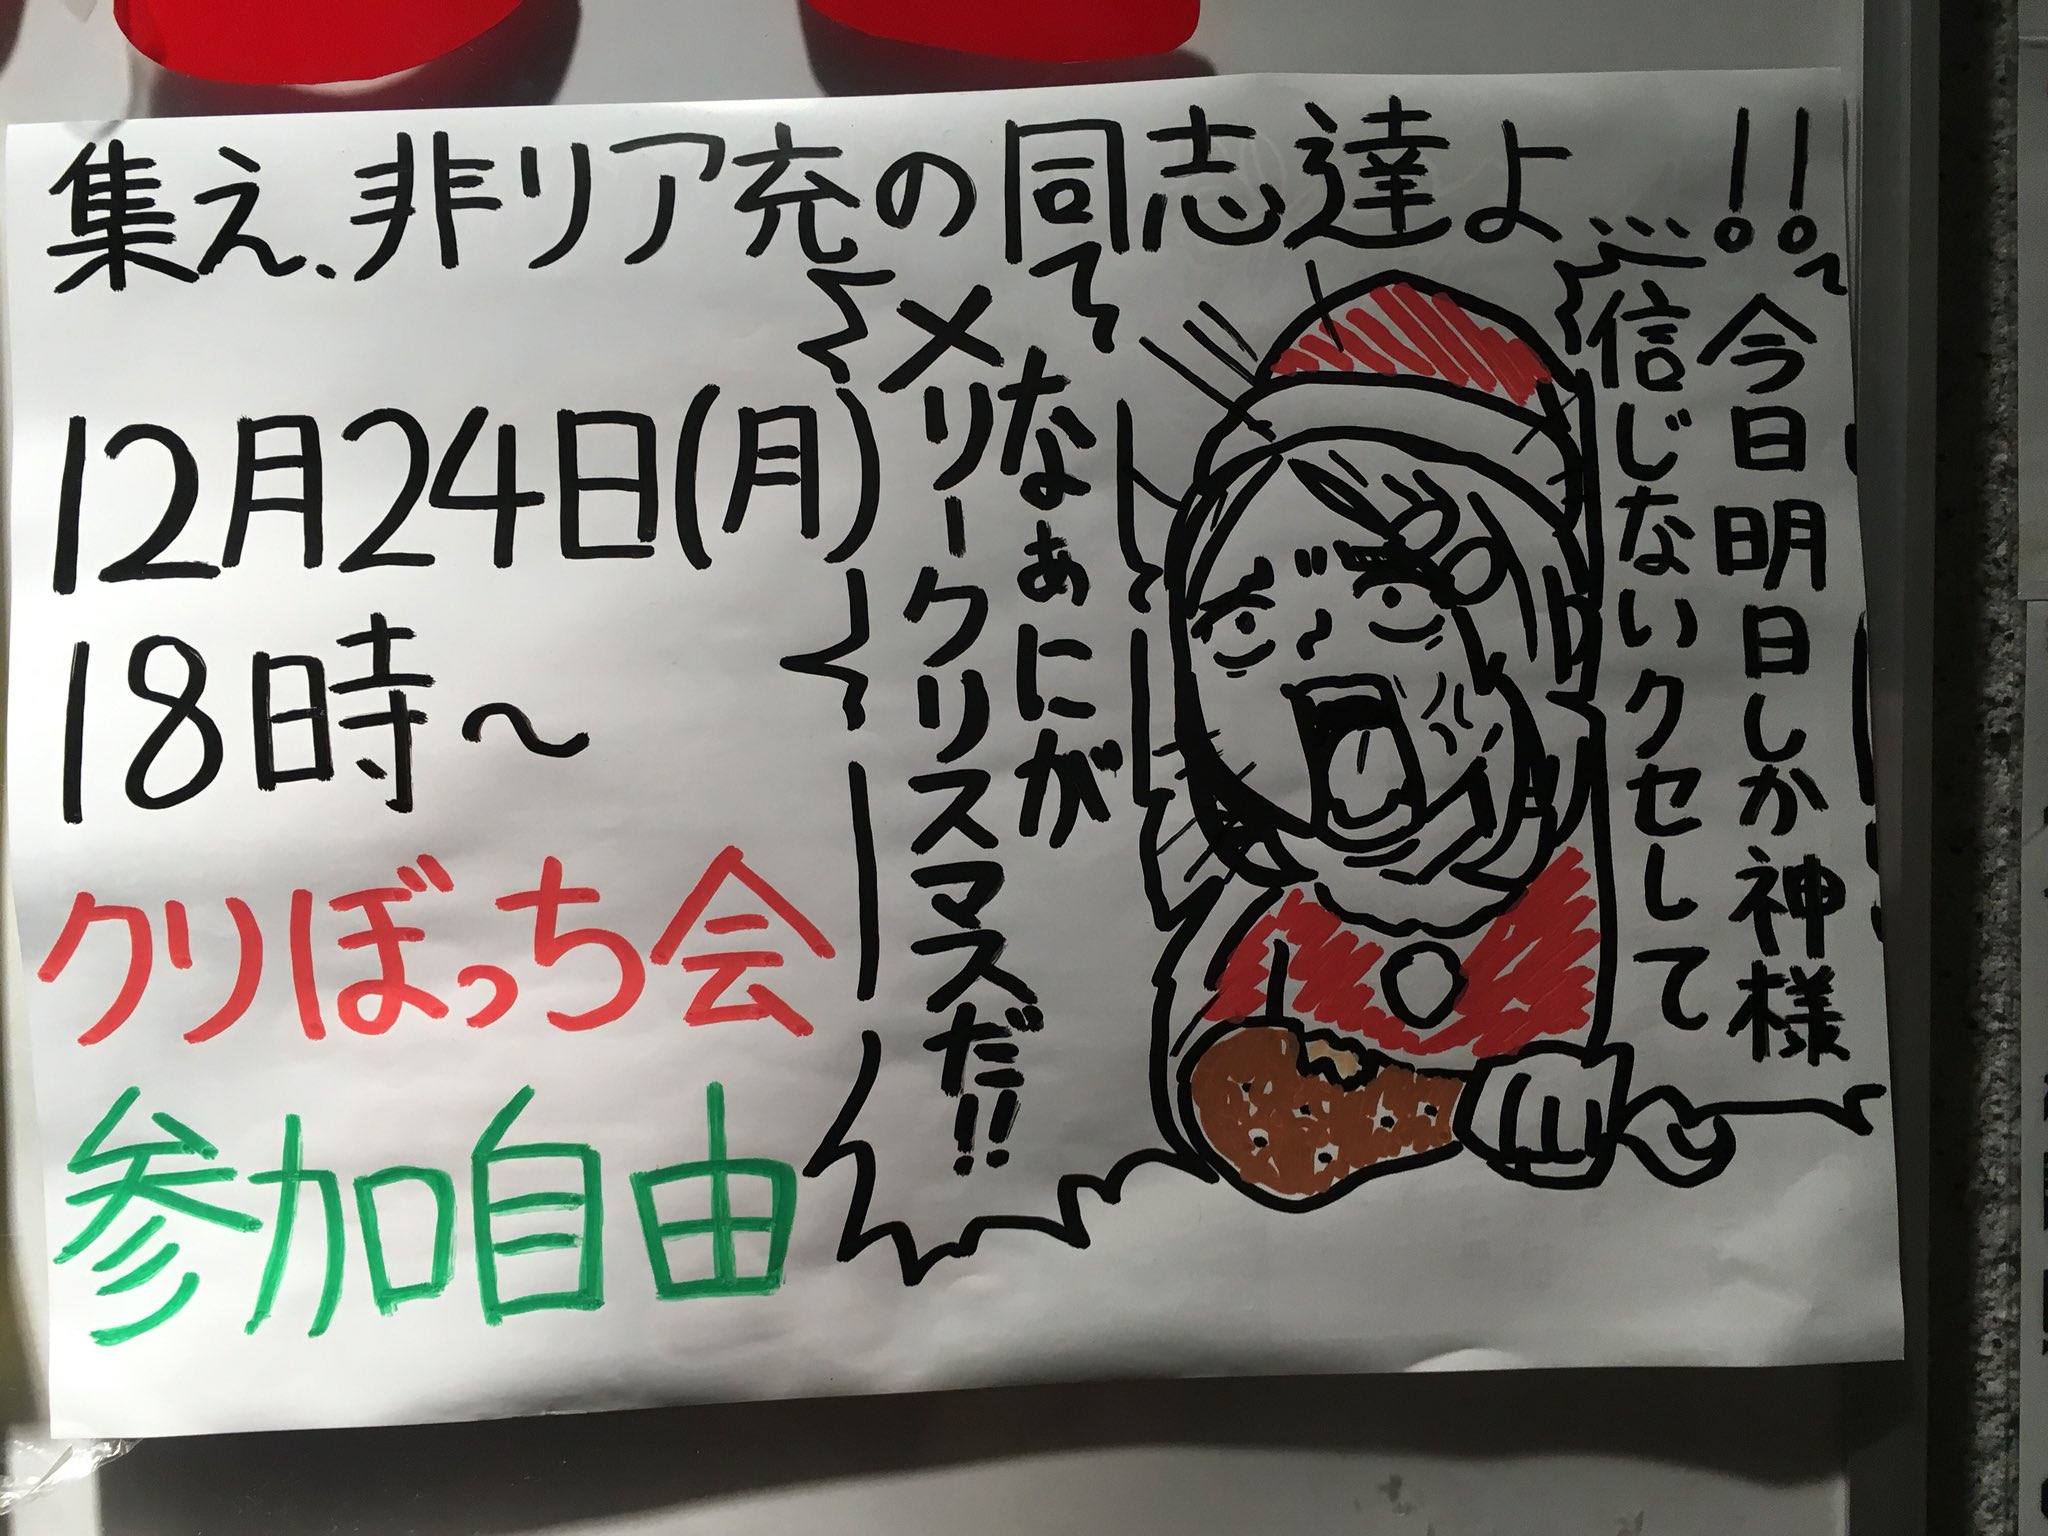 集え、非リア充の同志達よ…!!
今日明日しか神様
信じないクセして
なぁにが
メリークリスマスだ!!
12月24日(月)
18時～
クリぼっち会
参加自由